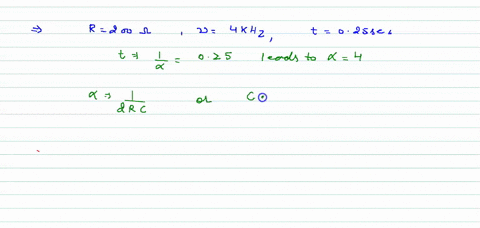 ⇒ R = 200 Ω , ν = 4 KHz , t = 0.25 sec
t ⇒ 1/α = 0.25 leads to α = 4
α ⇒ 1/2RC or C